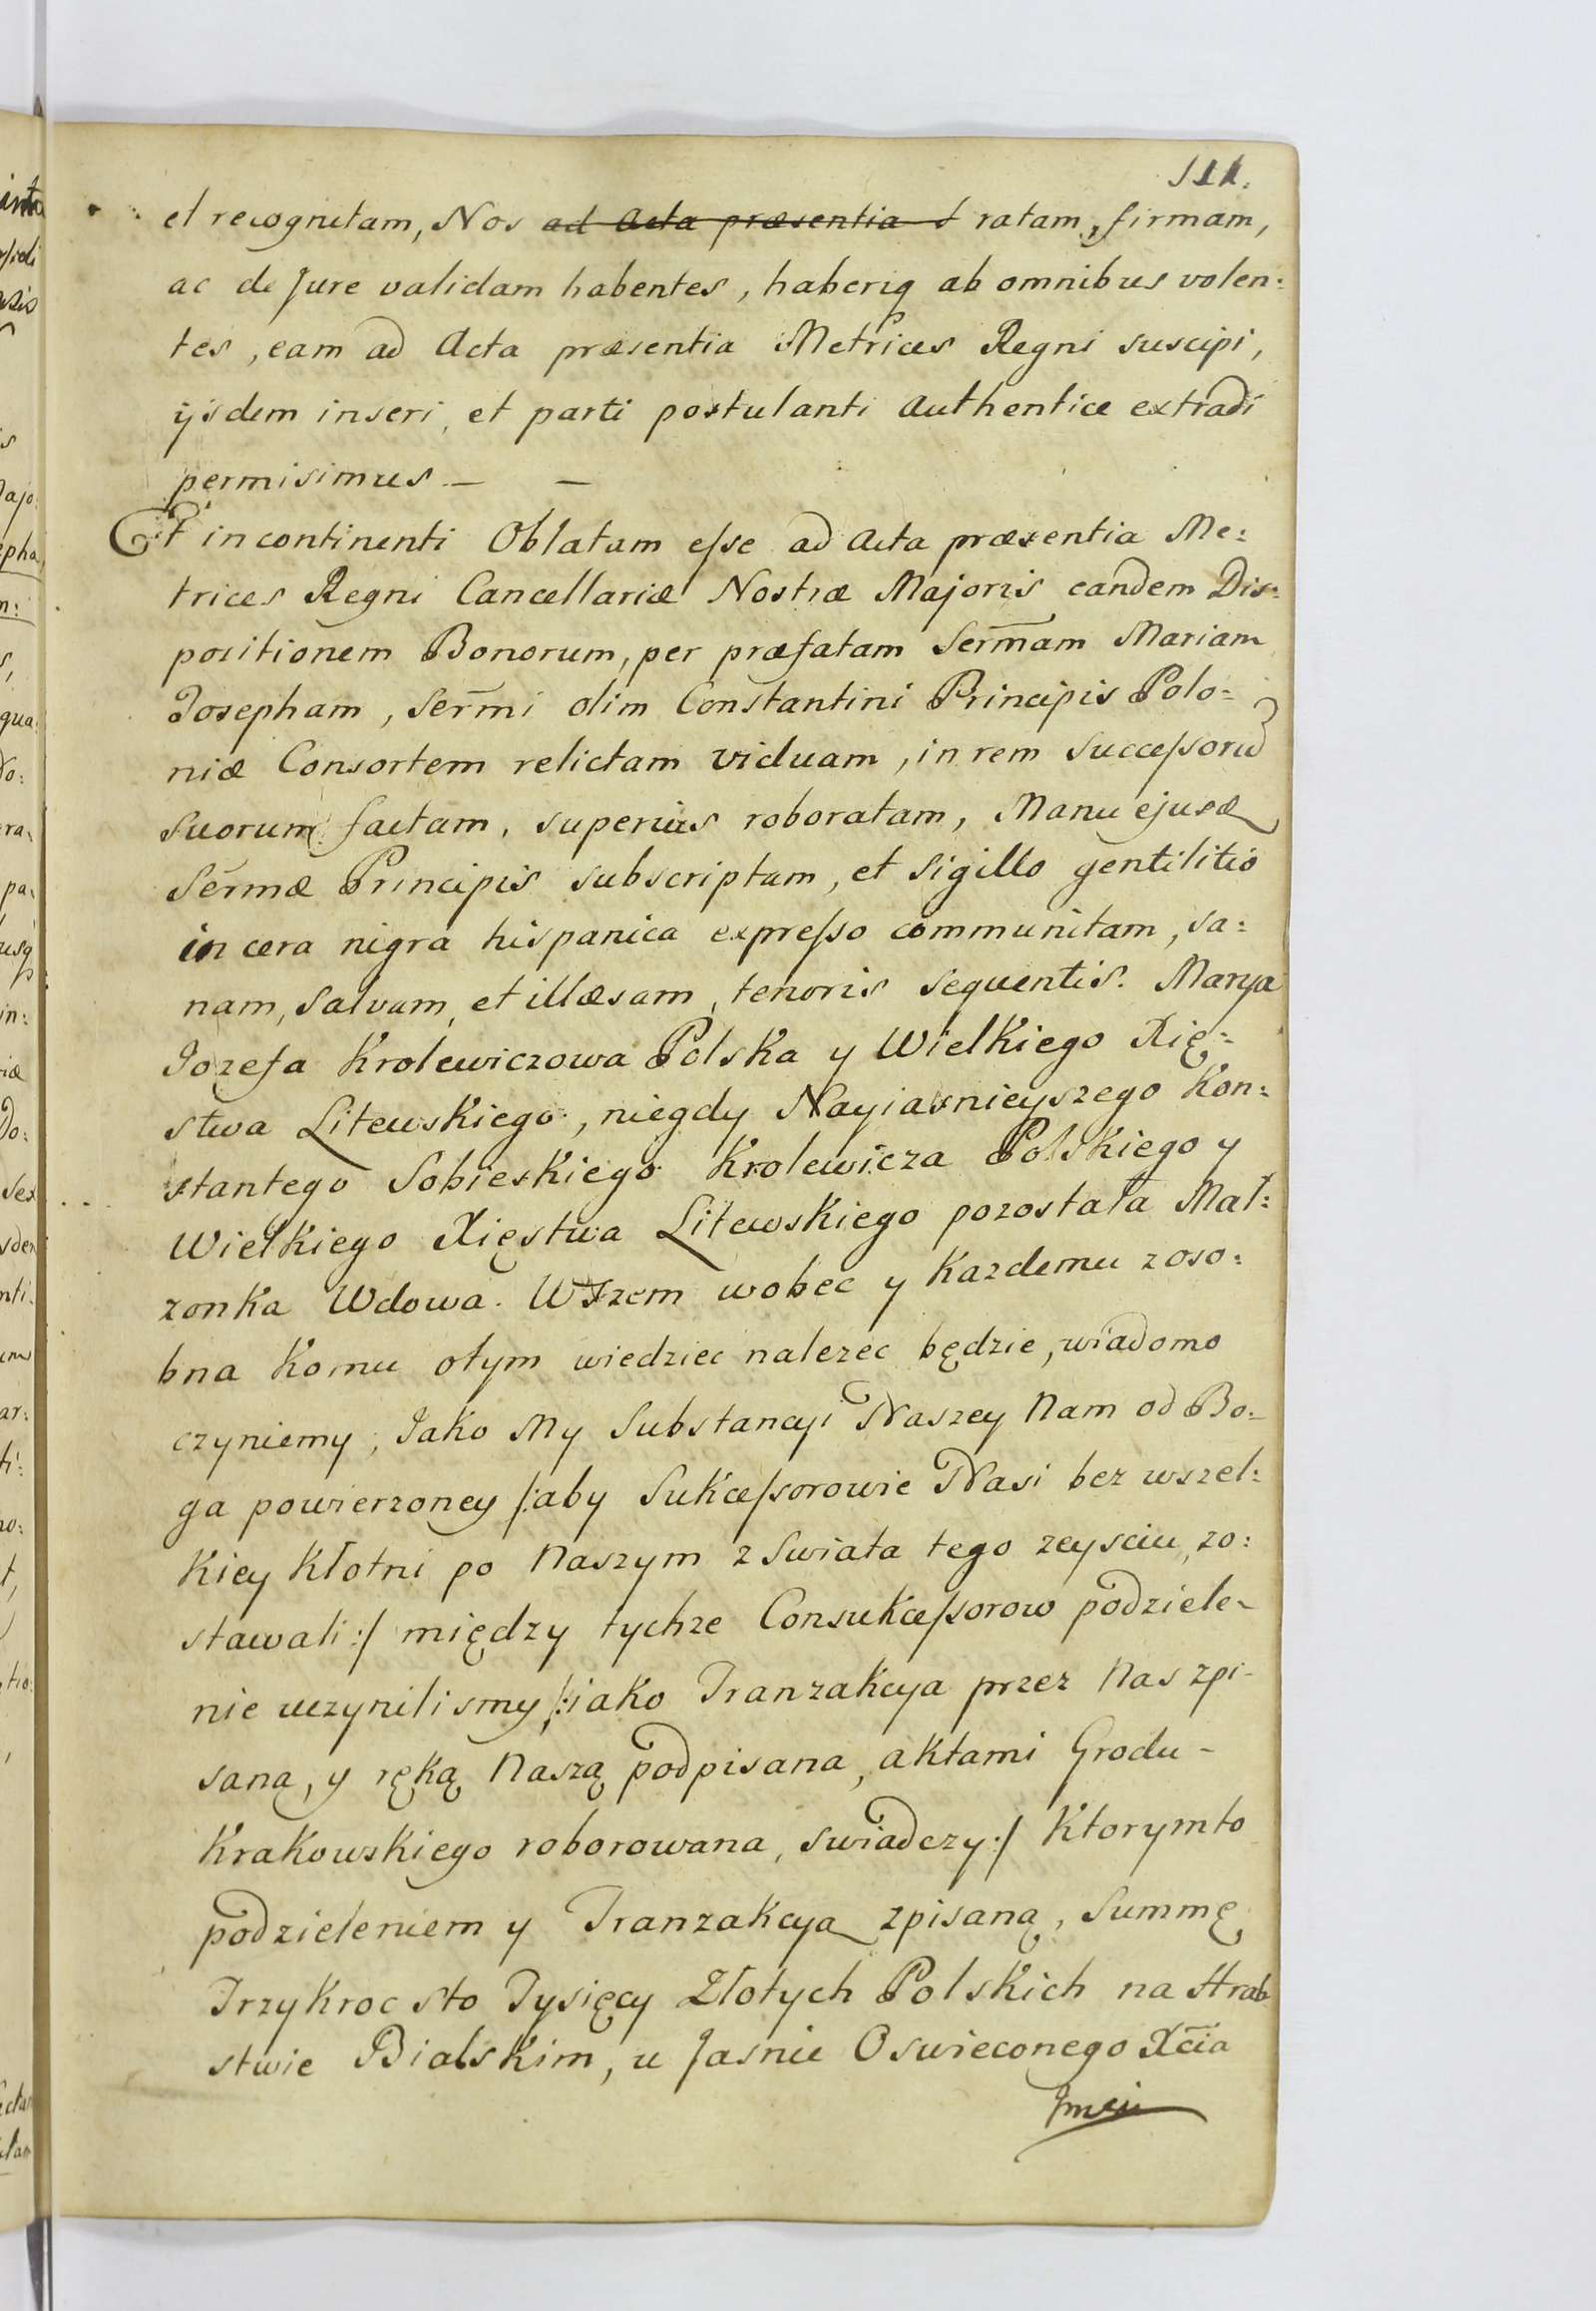 111.
et recognitam, Nos ad Acta præsentia t ratam, firmam,
ac de Jure validam habentes, haberiq ab omnibus volen:
tes, eam ad Acta præsentia Metrices Regni suscipi,
ijsdem inseri, et parti postulanti Authentice extradi
permisimus — —
Et incontinenti Oblatam eſse ad Acta præsentia Me:
trices Regni Cancellariæ Nostræ Majoris eandem Dis:
positionem Bonorum, per præfatam Serm̃am Mariam
Josepham, Serm̃i olim Constantini Principis Polo=
niæ Consortem relictam viduam, in rem Succeſsorũ
Suorum factam, superius roboratam, Manu ejusd
Serm̃æ Principis subscriptam, et Sigillo gentilitio
in cera nigra hispanica expreſso communitam, sa:
nam, salvam, et illæsam, tenoris sequentis. Marya
Jozefa Krolewiczowa Polska y Wielkiego Xię:
stwa Litewskiego, niegdy Nayiasnieyszego Kon:
stantego Sobieskiego Krolewicza Polskiego y
Wielkiego Xięstwa Litewskiego pozostała Mał:
zonka Wdowa. Wszem wobec y Kazdemu zoso:
bna Komu otym wiedziec nalezec będzie, wiadomo
czyniemy, Jako My Substancyi Naszey Nam od Bo:
ga powierzoney /:aby Sukceſsorowie Nasi bez wszel:
kiey Kłotni po Naszym z Swiata tego zeysciu, zo:
stawali:/ między tychze Consukceſsorow podziele-
nie uczynilismy /:jako Tranzakcya przez Nas zpi-
sana, y ręką Naszą podpisana, aktami Grodu-
Krakowskiego roborowana, swiadczy:/ Ktorymto
podzieleniem y Tranzakcya zpisaną, Summę
Trzykroc sto Tysięcy Złotych Polskich na Hrab
stwie Bialskim, u Jasnie Oswieconego Xc̃ia